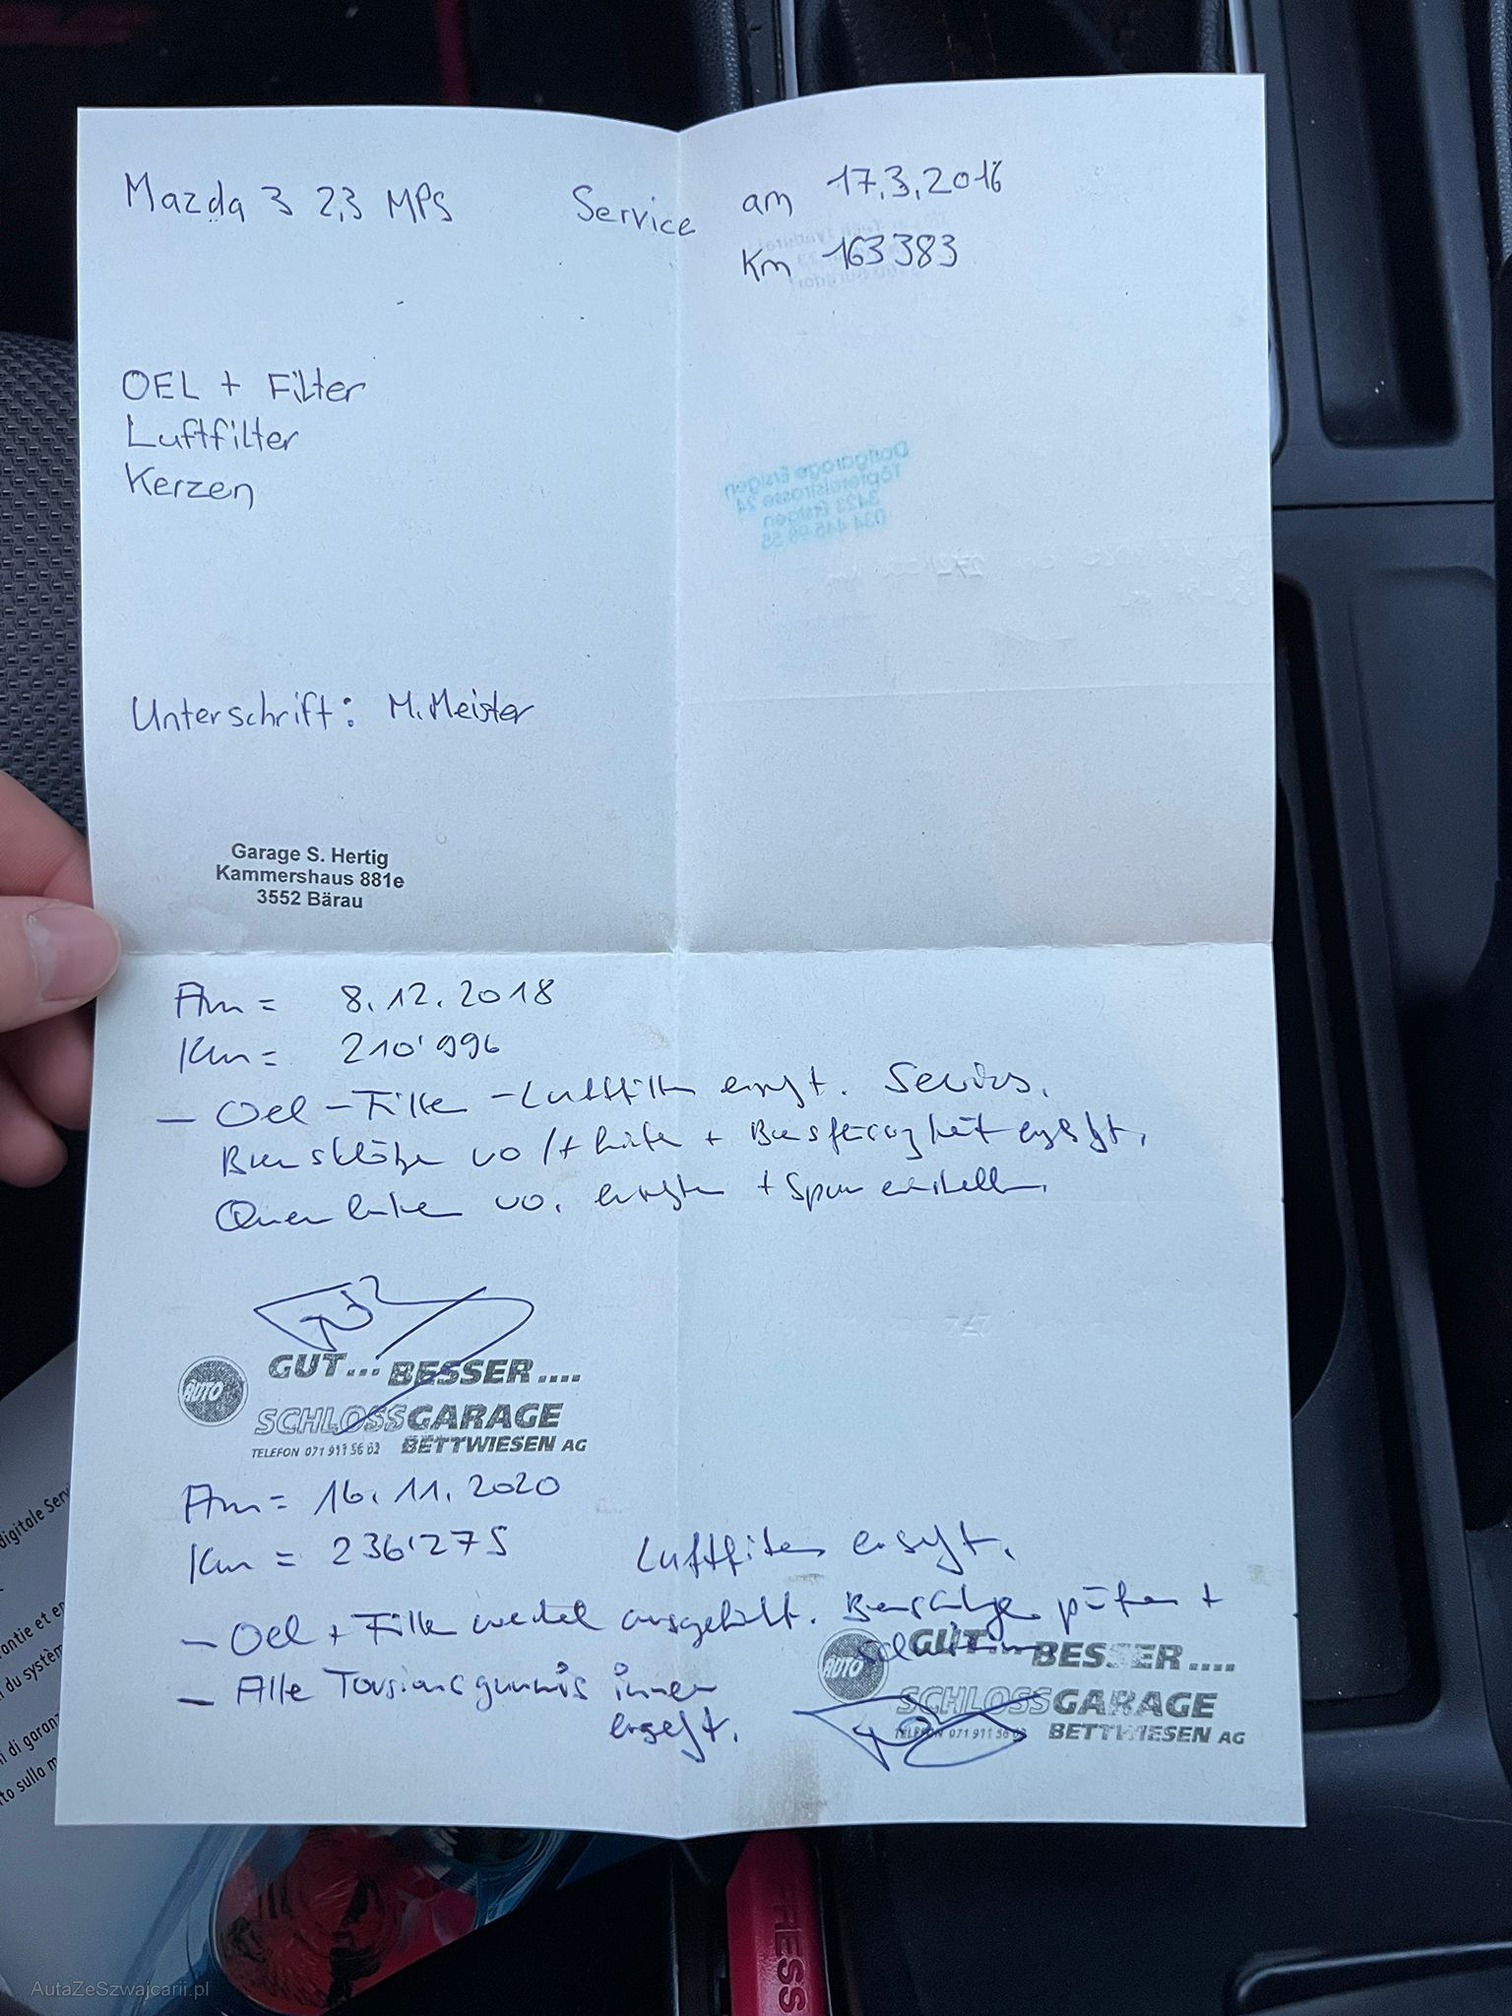 Mazda 3 2,3 MPS Service am 17.3.2016
Km 163383
OEL + Filter
Luftfilter
Kerzen
Dorfgarage Ersigen
Töpfereistrasse 24
3423 Ersigen
Unterschrift: M. Meister
Garage S. Hertig
Kammershaus 881e
3552 Bärau
Am = 8.12.2018
Km = 210'996
- Oel - Filter - Luftfilter ersetzt. Service.
Bremsklötze vo / + hinten + Bremsflüssigkeit ersetzt.
Querlenker vo. ersetzen + Spur einstellen.
GUT... BESSER....
AUTO
SCHLOSSGARAGE
TELEFON 071 911 56 02 BETTWIESEN AG
Am = 16.11.2020
Km = 236'275 Luftfilter ersetzt.
- Oel + Filter wechsel ausgeführt. prüfen +
GUT... BESSER....
AUTO
- Alle Torsionsgummis innen
SCHLOSSGARAGE
ersetzt.
TELEFON 071 911 56 02 BETTWIESEN AG
digitale Serv
du système
di garanz
sulla
RESS
AutaZeSzwajcarii.pl